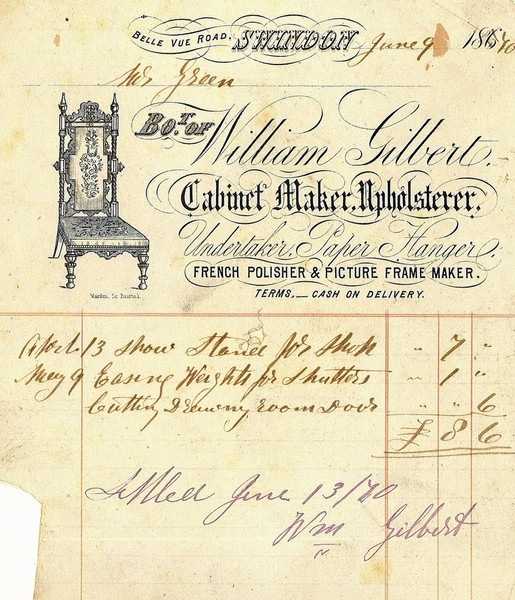 Belle Vue Road, SWINDON June 9 1870
Mr Green
BOT. OF William Gilbert.
Cabinet Maker, Upholsterer,
Undertaker, Paper Hanger.
FRENCH POLISHER & PICTURE FRAME MAKER.
TERMS,— CASH ON DELIVERY.
April 13 Show Stand for Shop " 7 "
May 9 Easing Weights for Shutters " 1 "
Cutting Drawing room Door " " 6
£ 8 6
Settled June 13/70
Wm Gilbert